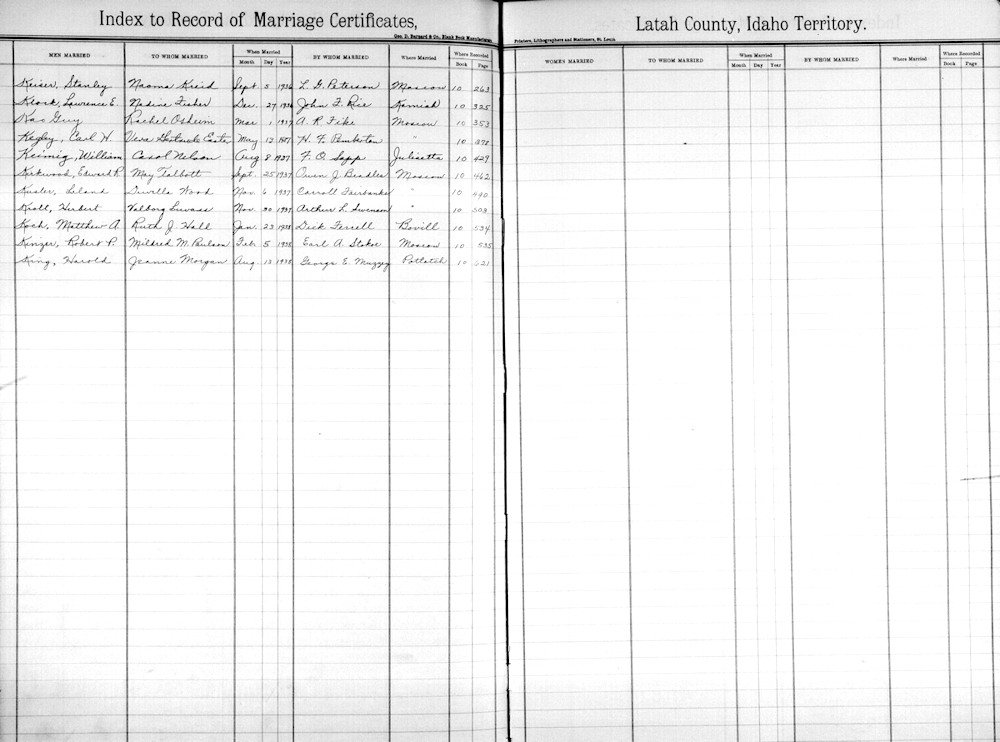 Index to Record of Marriage Certificates,
Geo. D. Barnard & Co., Blank Book Manufacturers,
MEN MARRIED TO WHOM MARRIED When Married Month Day Year BY WHOM MARRIED Where Married Where Recorded Book Page
Keiser, Stanley Naoma Kreid Sept 5 1936 L. G. Peterson Moscow 10 263
Lawrence E. Nadine Fisher Dec. 27 1936 John F. Rice Kamiah 10 325
Guy Rachel Osheim Mar 1 1937 A. R. Fike Moscow 10 353
Kegley, Carl H. Vera May 12 1937 H. F. Pemberton " 10 378
William Carol Nelson Aug 8 1937 F. O. Sapp Juliaetta 10 429
Kirkwood, Edward R. May Talbott Sept. 25 1937 Owen J. Beadles Moscow 10 462
Leland Wood Nov. 6 1937 Carroll Fairbanks " 10 490
Kroll, Herbert Valborg Nov. 30 1937 Arthur L. Swenson " 10 503
Koch, Matthew A. Ruth J. Hall Jan. 23 1938 Dick Ferrell Bovill 10 534
Kinzer, Robert P. Mildred M. Paulson Feb. 5 1938 Earl A. Moscow 10 535
King, Harold Jeanne Morgan Aug. 13 1938 George E. Muzzey Potlatch 10 621
Latah County, Idaho Territory.
Printers, Lithographers and Stationers, St. Louis
WOMEN MARRIED TO WHOM MARRIED When Married Month Day Year BY WHOM MARRIED Where Married Where Recorded Book Page